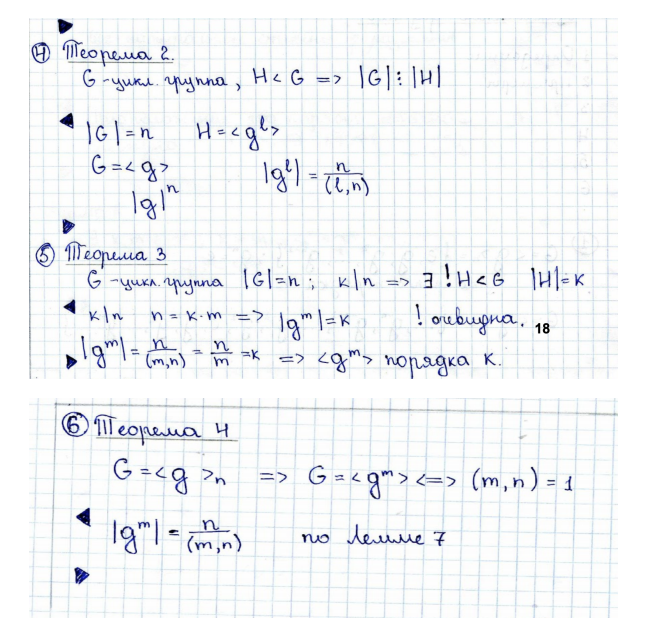 ④ Теорема 2.
G - цикл. группа, H < G => |G| ⋮ |H|
|G| = n H = <g^l>
G = <g> |g^l| = n/(l,n)
|g|^n
⑤ Теорема 3
G - цикл. группа |G| = n ; k|n => ∃ ! H < G |H| = k
k|n n = k·m => |g^m| = k ! очевидна.
18
|g^m| = n/(m,n) = n/m = k => <g^m> порядка k.
⑥ Теорема 4
G = <g>_n => G = <g^m> <=> (m, n) = 1
|g^m| = n/(m,n) по Лемме 7